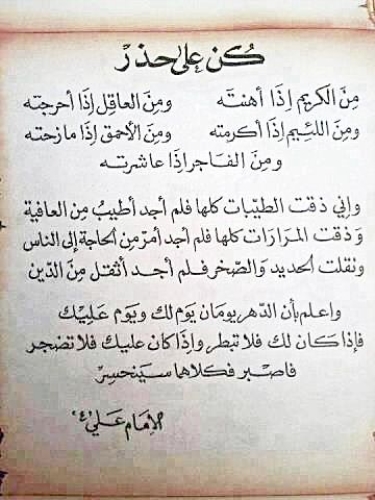 كن على حذر
من الكريم إذا أهنته ومن العاقل إذا أحرجته
ومن اللئيم إذا أكرمته ومن الأحمق إذا مازحته
ومن الفاجر إذا عاشرته
وإني ذقت الطيبات كلها فلم أجد أطيب من العافية
وذقت المرارات كلها فلم أجد أمرّ من الحاجة إلى الناس
ونقلت الحديد والصخر فلم أجد أثقل من الدّين
واعلم بأن الدهر يومان يوم لك ويوم عليك
فإذا كان لك فلا تبطر وإذا كان عليك فلا تضجر
فاصبر فكلاهما سينحسر
الإمام علي "ع"